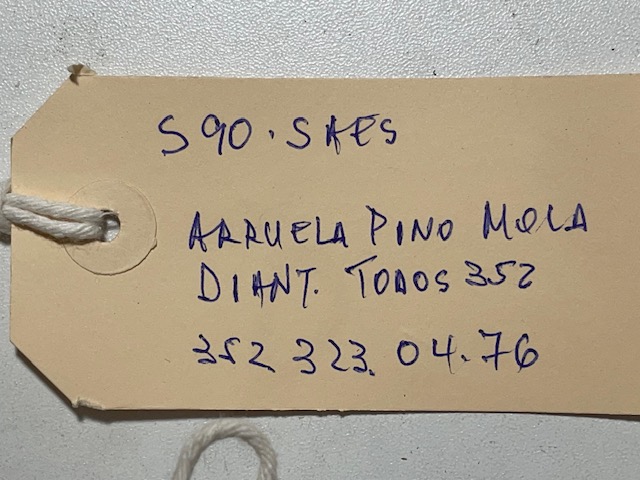 S90.SAES
ARRUELA PINO MOLA
DIANT. TODOS 352
352 323.04.76